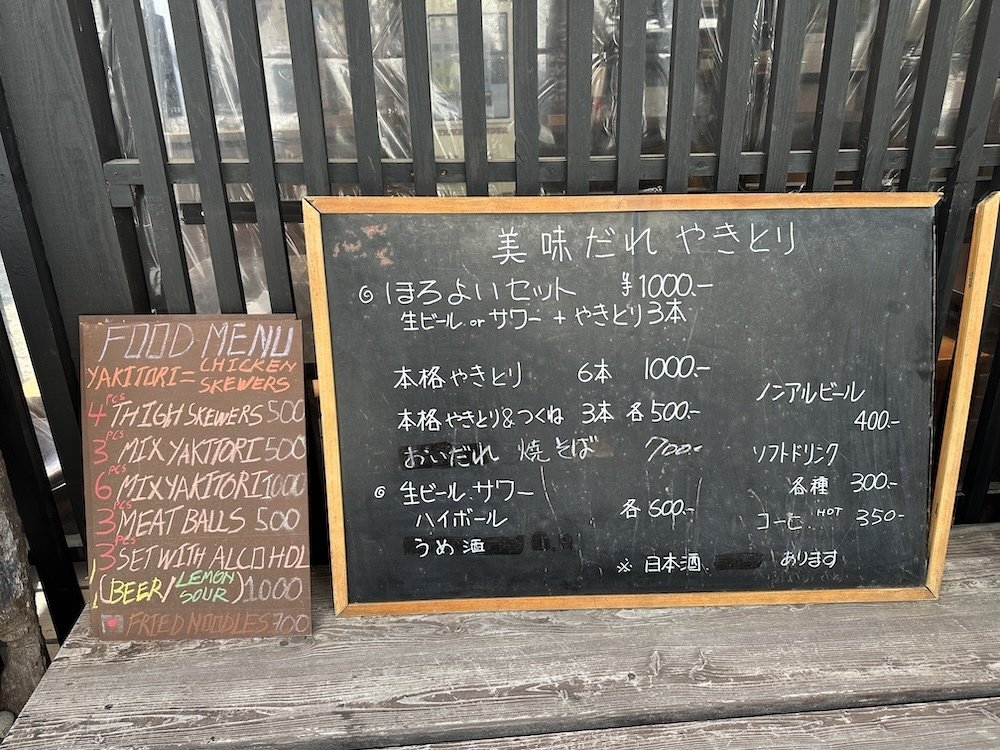 FOOD MENU
YAKITORI = CHICKEN SKEWERS
4 PCS THIGH SKEWERS 500
3 PCS MIX YAKITORI 500
6 PCS MIX YAKITORI 1000
3 PCS MEAT BALLS 500
3 PCS SET WITH ALCOHOL
1 (BEER/LEMON SOUR) 1000
FRIED NOODLES 700
美味だれ やきとり
◎ ほろよいセット ¥1000.-
生ビール or サワー + やきとり3本
本格やきとり 6本 1000.-
本格やきとり&つくね 3本 各500.-
おいだれ 焼そば 700.-
◎ 生ビール.サワー
ハイボール 各600.-
うめ酒
ノンアルビール
400.-
ソフトドリンク
各種 300.-
コーヒー HOT 350.-
※ 日本酒. あります